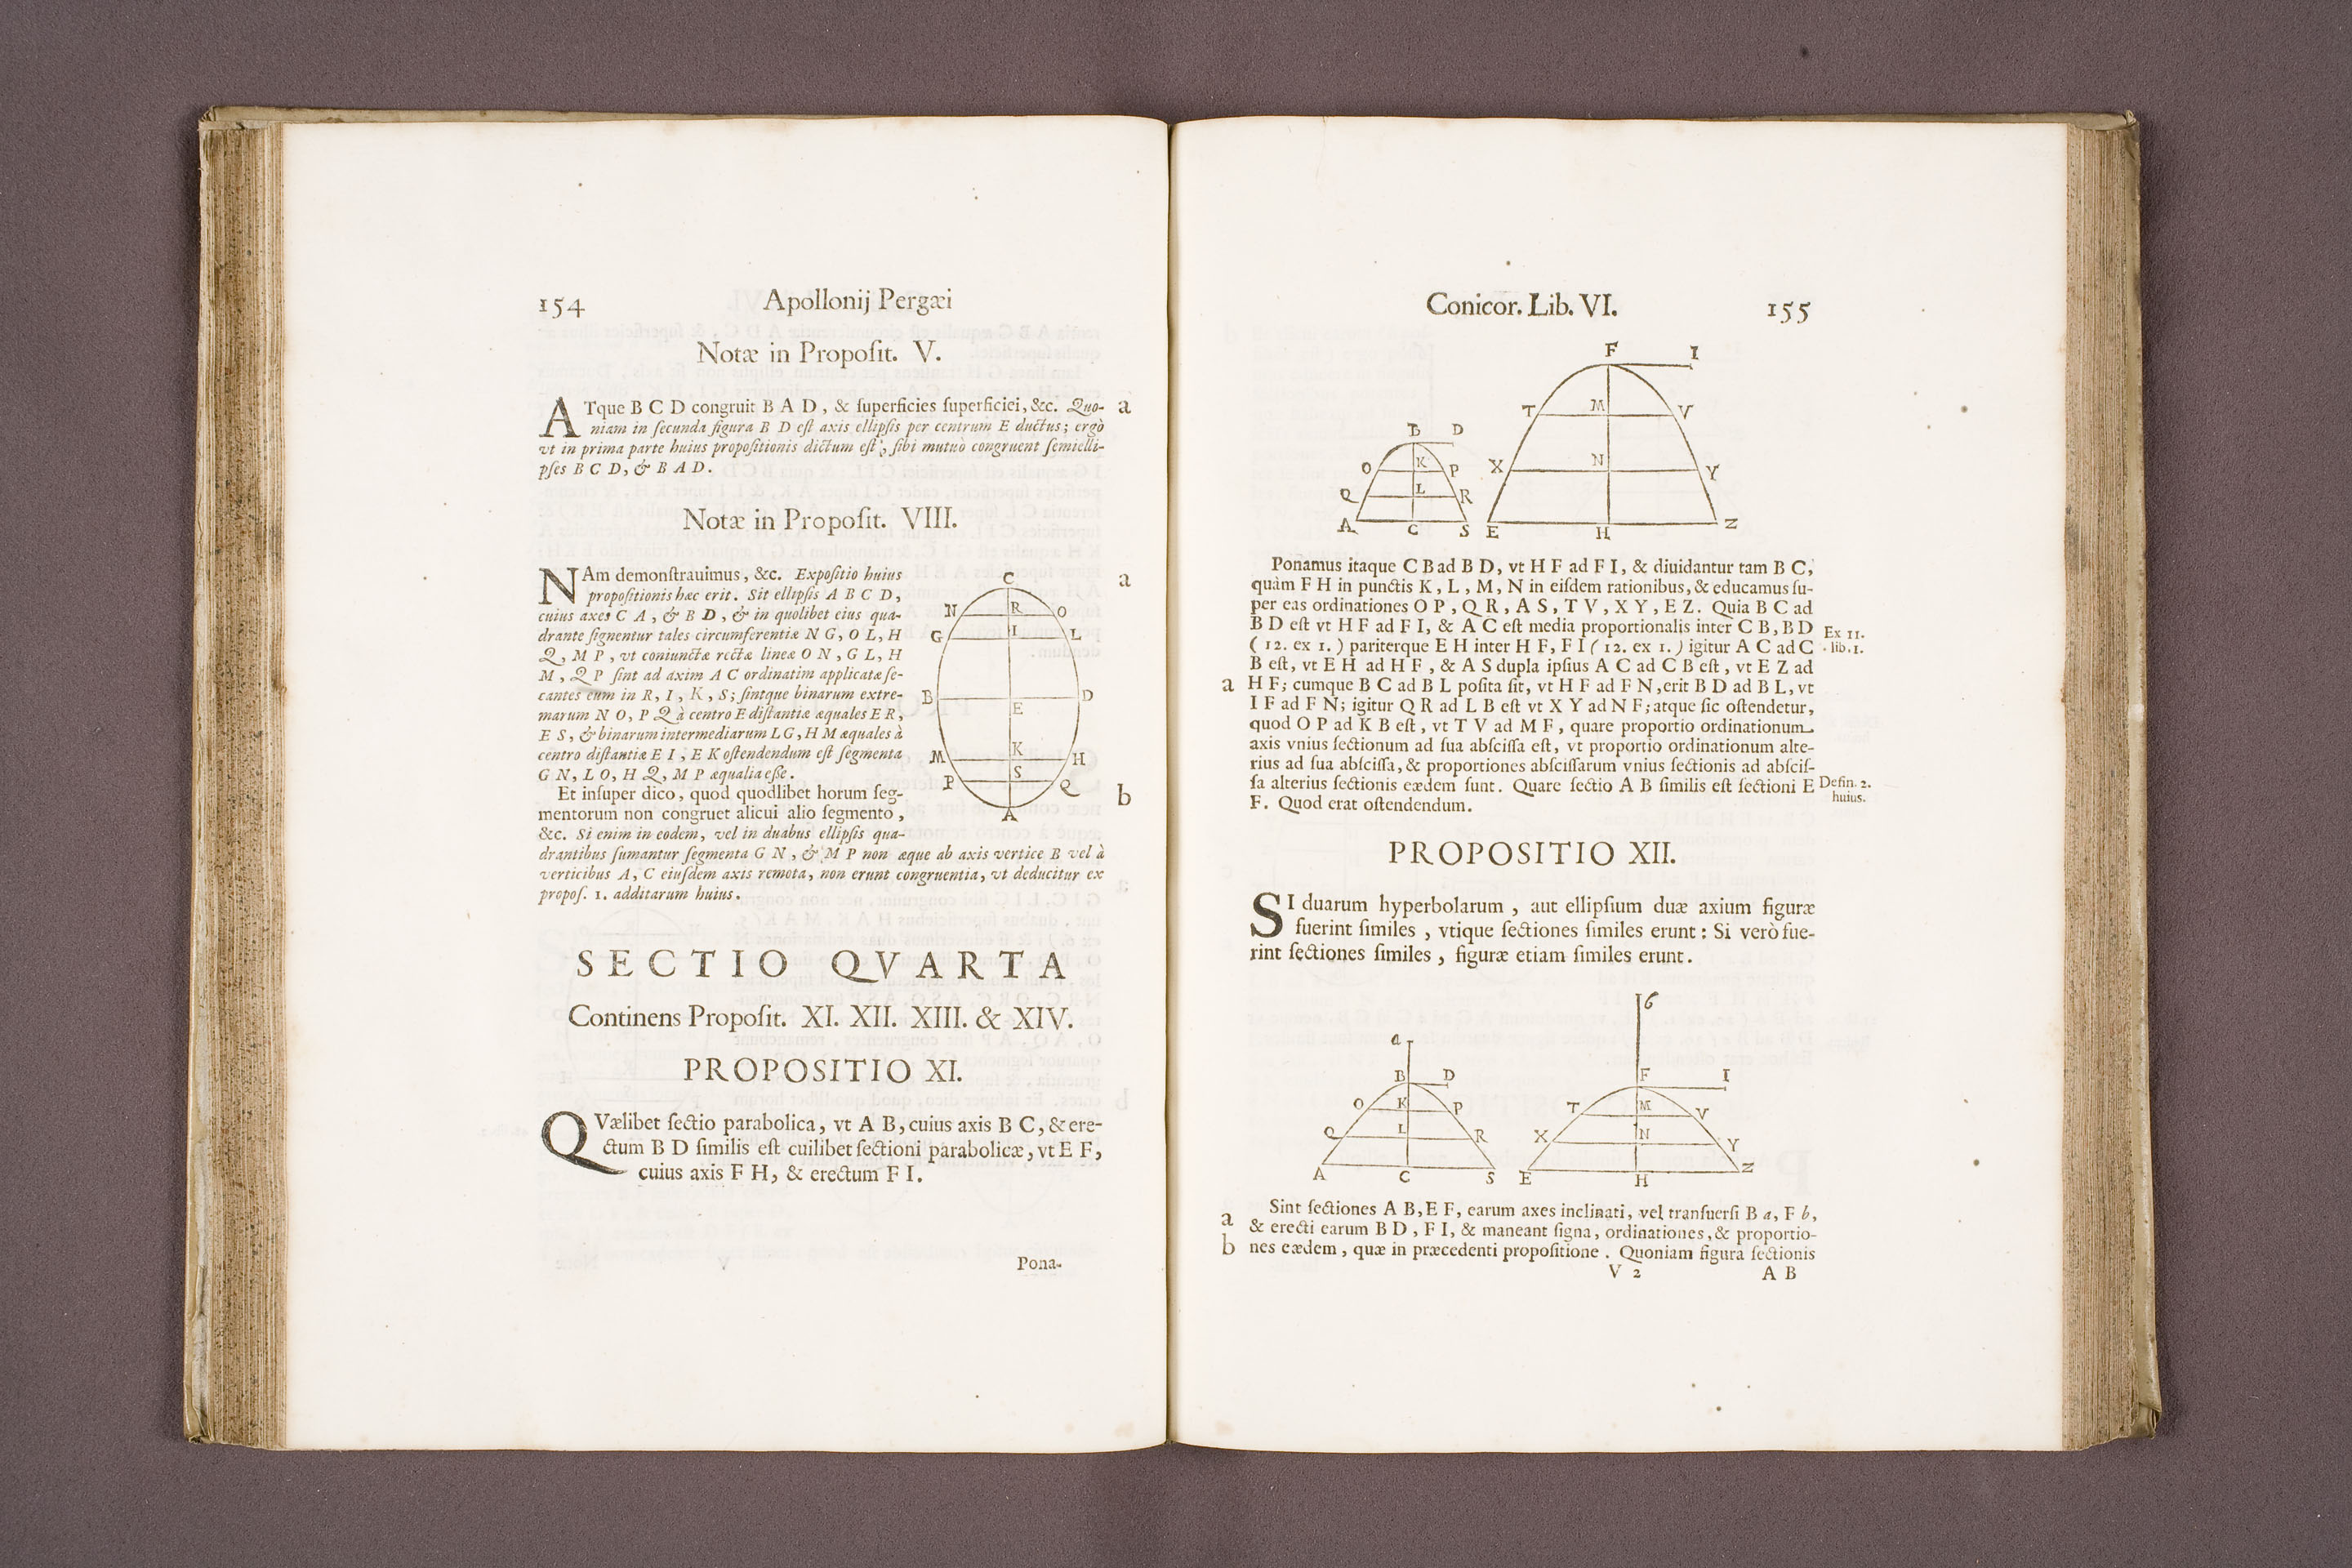 154 Apollonij Pergæi
Notæ in Propoſit. V.
ATque B C D congruit B A D, & ſuperficies ſuperficiei, &c. Quo- a
niam in ſecunda figura B D eſt axis ellipſis per centrum E ductus; ergò
vt in prima parte huius propoſitionis dictum eſt, ſibi mutuò congruent ſemielli-
pſes B C D, & B A D.
Notæ in Propoſit. VIII.
NAm demonſtrauimus, &c. Expoſitio huius a
propoſitionis hæc erit. Sit ellipſis A B C D,
cuius axes C A, & B D, & in quolibet eius qua-
drante ſignentur tales circumferentiæ N G, O L, H
Q, M P, vt coniunctæ rectæ lineæ O N, G L, H
M, Q P ſint ad axim A C ordinatim applicatæ ſe-
cantes eum in R, I, K, S; ſintque binarum extre-
marum N O, P Q à centro E diſtantiæ æquales E R,
E S, & binarum intermediarum L G, H M æquales à
centro diſtantiæ E I, E K oſtendendum eſt ſegmenta
G N, L O, H Q, M P æqualia eſſe.
Et inſuper dico, quod quodlibet horum ſeg- b
mentorum non congruet alicui alio ſegmento,
&c. Si enim in eodem, vel in duabus ellipſis qua-
drantibus ſumantur ſegmenta G N, & M P non æque ab axis vertice B vel à
verticibus A, C eiuſdem axis remota, non erunt congruentia, vt deducitur ex
propoſ. 1. additarum huius.
C
N R O
G I L
B D
E
M K H
P S Q
A
SECTIO QVARTA
Continens Propoſit. XI. XII. XIII. & XIV.
PROPOSITIO XI.
QVælibet ſectio parabolica, vt A B, cuius axis B C, & ere-
ctum B D ſimilis eſt cuilibet ſectioni parabolicæ, vt E F,
cuius axis F H, & erectum F I.
Pona-
Conicor. Lib. VI. 155
F I
T M V
B D
O K P X N Y
Q L R
A C S E H Z
Ponamus itaque C B ad B D, vt H F ad F I, & diuidantur tam B C,
quàm F H in punctis K, L, M, N in eiſdem rationibus, & educamus ſu-
per eas ordinationes O P, Q R, A S, T V, X Y, E Z. Quia B C ad
B D eſt vt H F ad F I, & A C eſt media proportionalis inter C B, B D Ex 11.
( 12. ex 1. ) pariterque E H inter H F, F I ( 12. ex 1. ) igitur A C ad C lib. 1.
B eſt, vt E H ad H F, & A S dupla ipſius A C ad C B eſt, vt E Z ad
a H F; cumque B C ad B L poſita ſit, vt H F ad F N, erit B D ad B L, vt
I F ad F N; igitur Q R ad L B eſt vt X Y ad N F; atque ſic oſtendetur,
quod O P ad K B eſt, vt T V ad M F, quare proportio ordinationum
axis vnius ſectionum ad ſua abſciſſa eſt, vt proportio ordinationum alte-
rius ad ſua abſciſſa, & proportiones abſciſſarum vnius ſectionis ad abſciſ-
ſa alterius ſectionis eædem ſunt. Quare ſectio A B ſimilis eſt ſectioni E Defin. 2.
F. Quod erat oſtendendum. huius.
PROPOSITIO XII.
SI duarum hyperbolarum, aut ellipſium duæ axium figuræ
fuerint ſimiles, vtique ſectiones ſimiles erunt: Si verò fue-
rint ſectiones ſimiles, figuræ etiam ſimiles erunt.
b
a
B D F I
O K P T M V
Q L R X N Y
A C S E H Z
a Sint ſectiones A B, E F, earum axes inclinati, vel tranſuerſi B a, F b,
& erecti earum B D, F I, & maneant ſigna, ordinationes, & proportio-
b nes eædem, quæ in præcedenti propoſitione. Quoniam figura ſectionis
V 2 A B